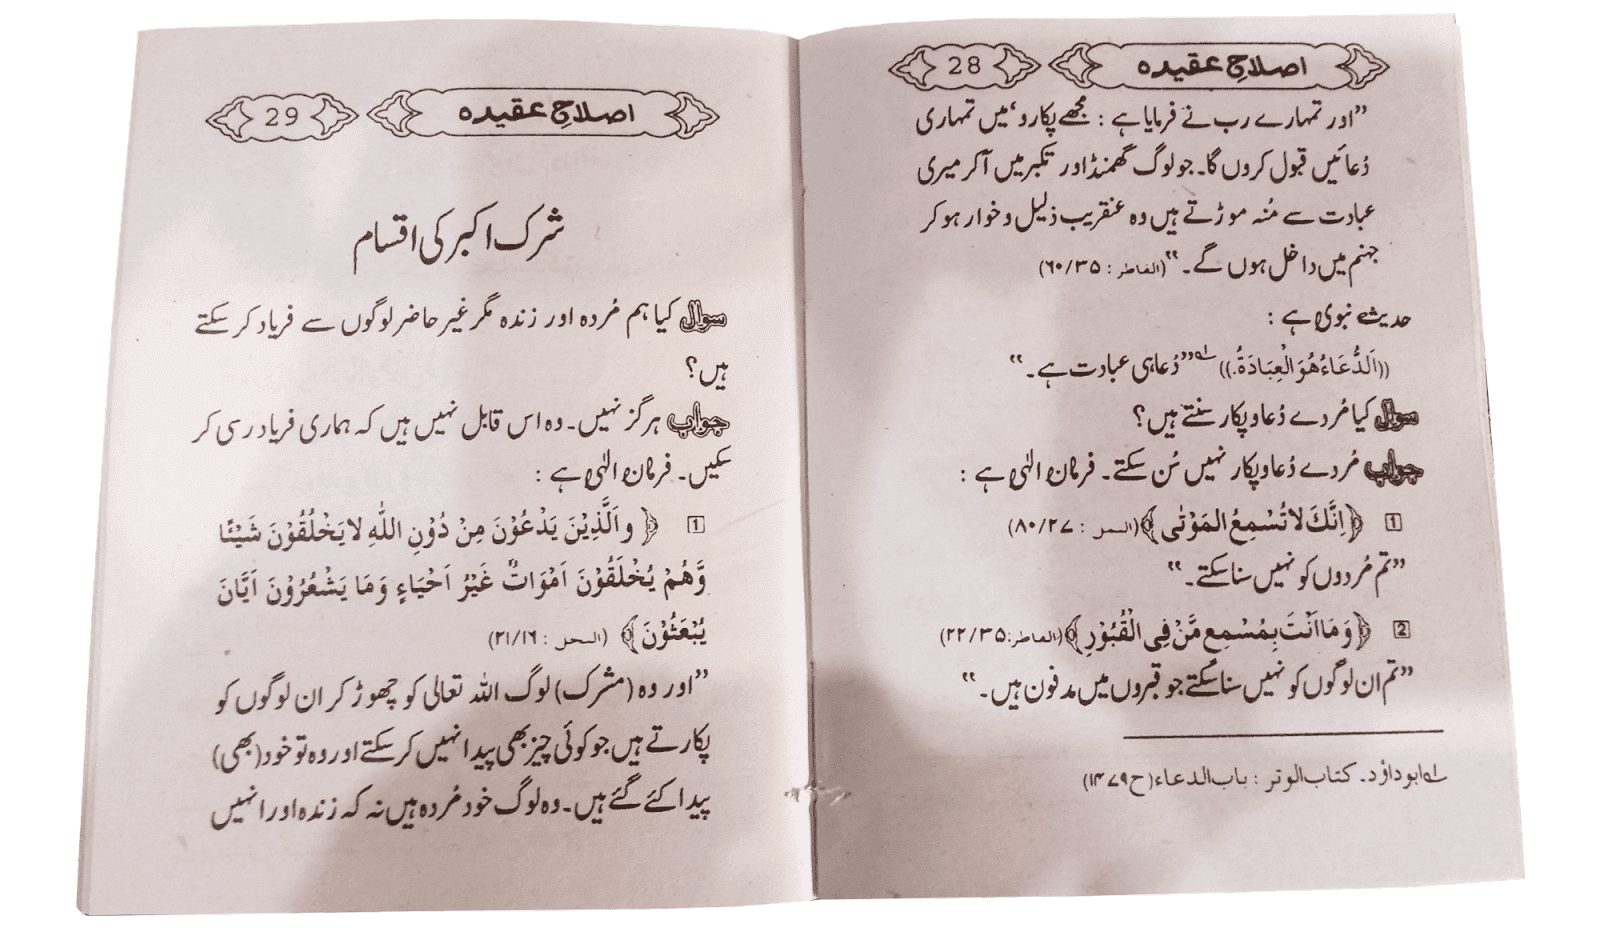 اصلاحِ عقیدہ 28
”اور تمہارے رب نے فرمایا ہے : مجھے پکارو‘ میں تمہاری
دُعائیں قبول کروں گا۔ جو لوگ گھمنڈ اور تکبر میں آ کر میری
عبادت سے مُنہ موڑتے ہیں وہ عنقریب ذلیل و خوار ہو کر
جہنم میں داخل ہوں گے۔“ (الفاطر : ۶۰/۳۵)
حدیث نبوی ہے :
((اَلدُّعَاءُ هُوَ الْعِبَادَةُ.)) ؎۱ ”دُعا ہی عبادت ہے۔“
سوال کیا مُردے دُعا و پکار سنتے ہیں؟
جواب مُردے دُعا و پکار نہیں سُن سکتے۔ فرمان الٰہی ہے :
1 ﴿اِنَّكَ لَا تُسْمِعُ الْمَوْتٰى﴾ (النمل : ۸۰/۲۷)
”تم مُردوں کو نہیں سنا سکتے۔“
2 ﴿وَمَا اَنْتَ بِمُسْمِعٍ مَّنْ فِى الْقُبُوْرِ﴾ (الفاطر:۲۲/۳۵)
”تم ان لوگوں کو نہیں سنا سکتے جو قبروں میں مدفون ہیں۔“
؎۱ ابوداؤد۔ کتاب الوتر : باب الدعاء (ح ۱۴۷۹)
اصلاحِ عقیدہ 29
شرک اکبر کی اقسام
سوال کیا ہم مُردہ اور زندہ مگر غیر حاضر لوگوں سے فریاد کر سکتے
ہیں؟
جواب ہرگز نہیں۔ وہ اس قابل نہیں ہیں کہ ہماری فریاد رسی کر
سکیں۔ فرمان الٰہی ہے :
1 ﴿وَالَّذِيْنَ يَدْعُوْنَ مِنْ دُوْنِ اللّٰهِ لَا يَخْلُقُوْنَ شَيْئًا
وَّهُمْ يُخْلَقُوْنَ اَمْوَاتٌ غَيْرُ اَحْيَاءٍ وَمَا يَشْعُرُوْنَ اَيَّانَ
يُبْعَثُوْنَ﴾ (النحل : ۲۱/۱۶)
”اور وہ (مشرک) لوگ اللہ تعالیٰ کو چھوڑ کر ان لوگوں کو
پکارتے ہیں جو کوئی چیز بھی پیدا نہیں کر سکتے اور وہ تو خود (بھی)
پیدا کئے گئے ہیں۔ وہ لوگ خود مُردہ ہیں نہ کہ زندہ اور انہیں